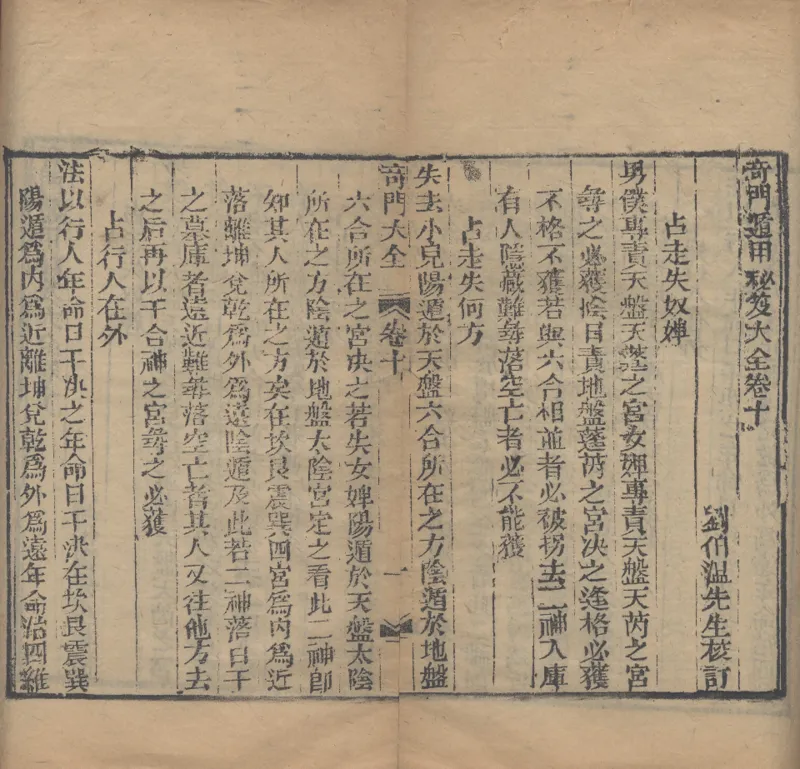 奇門遁甲秘笈大全卷十
劉伯溫先生校訂
占走失奴婢
男僕專責天盤天蓬之宮女婢專責天盤天芮之宮
尋之必獲陰日責地盤蓬芮之宮决之逢格必獲
不格不獲若與六合相並者必被拐去二神入庫
有人隱藏難尋落空亡者必不能獲
占走失何方
失去小兒陽遁於天盤六合所在之方陰遁於地盤
奇門大全 卷十 一
六合所在之宮决之若失女婢陽遁於天盤太陰
所在之方陰遁於地盤太陰宮定之看此二神卽
知其人所在之方矣在坎艮震巽四宮爲內爲近
落離坤兌乾爲外爲遠陰遁反此若二神落日干
之墓庫者遠近難尋落空亡者其人又往他方去
之后再以干合神之宮尋之必獲
占行人在外
法以行人年命日干决之年命日干决在坎艮震巽
陽遁爲內爲近離坤兌乾爲外爲遠年命治四維